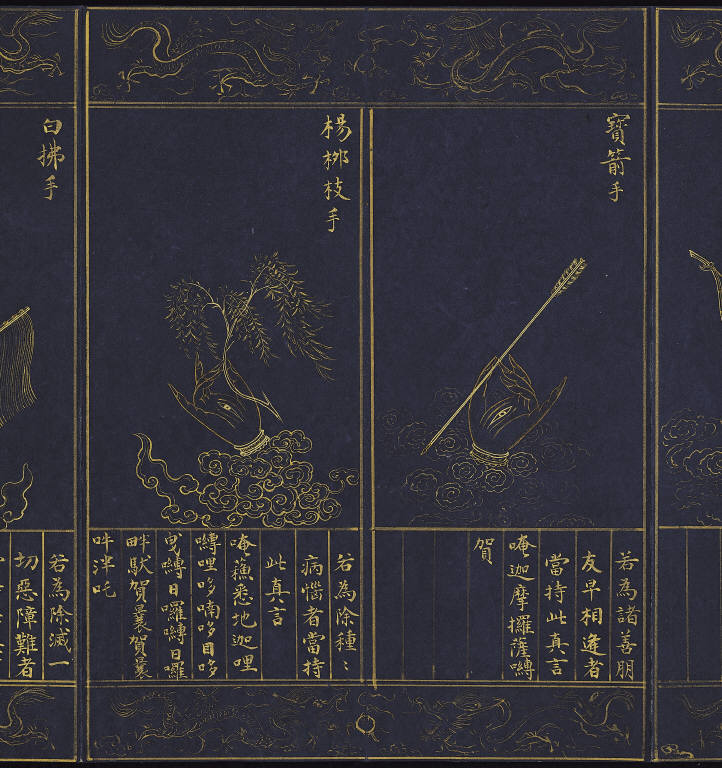 寶箭手
若為諸善朋
友早相逢者
當持此真言
唵迦摩攞薩嚩
賀
楊桞枝手
若為除種〻
病惱者當持
此真言
唵蘓悉地迦哩
嚩哩哆喃哆目哆
曳嚩日囉嚩日囉
畔馱賀曩賀曩
吽泮吒
白拂手
若為除滅一
切惡障難者